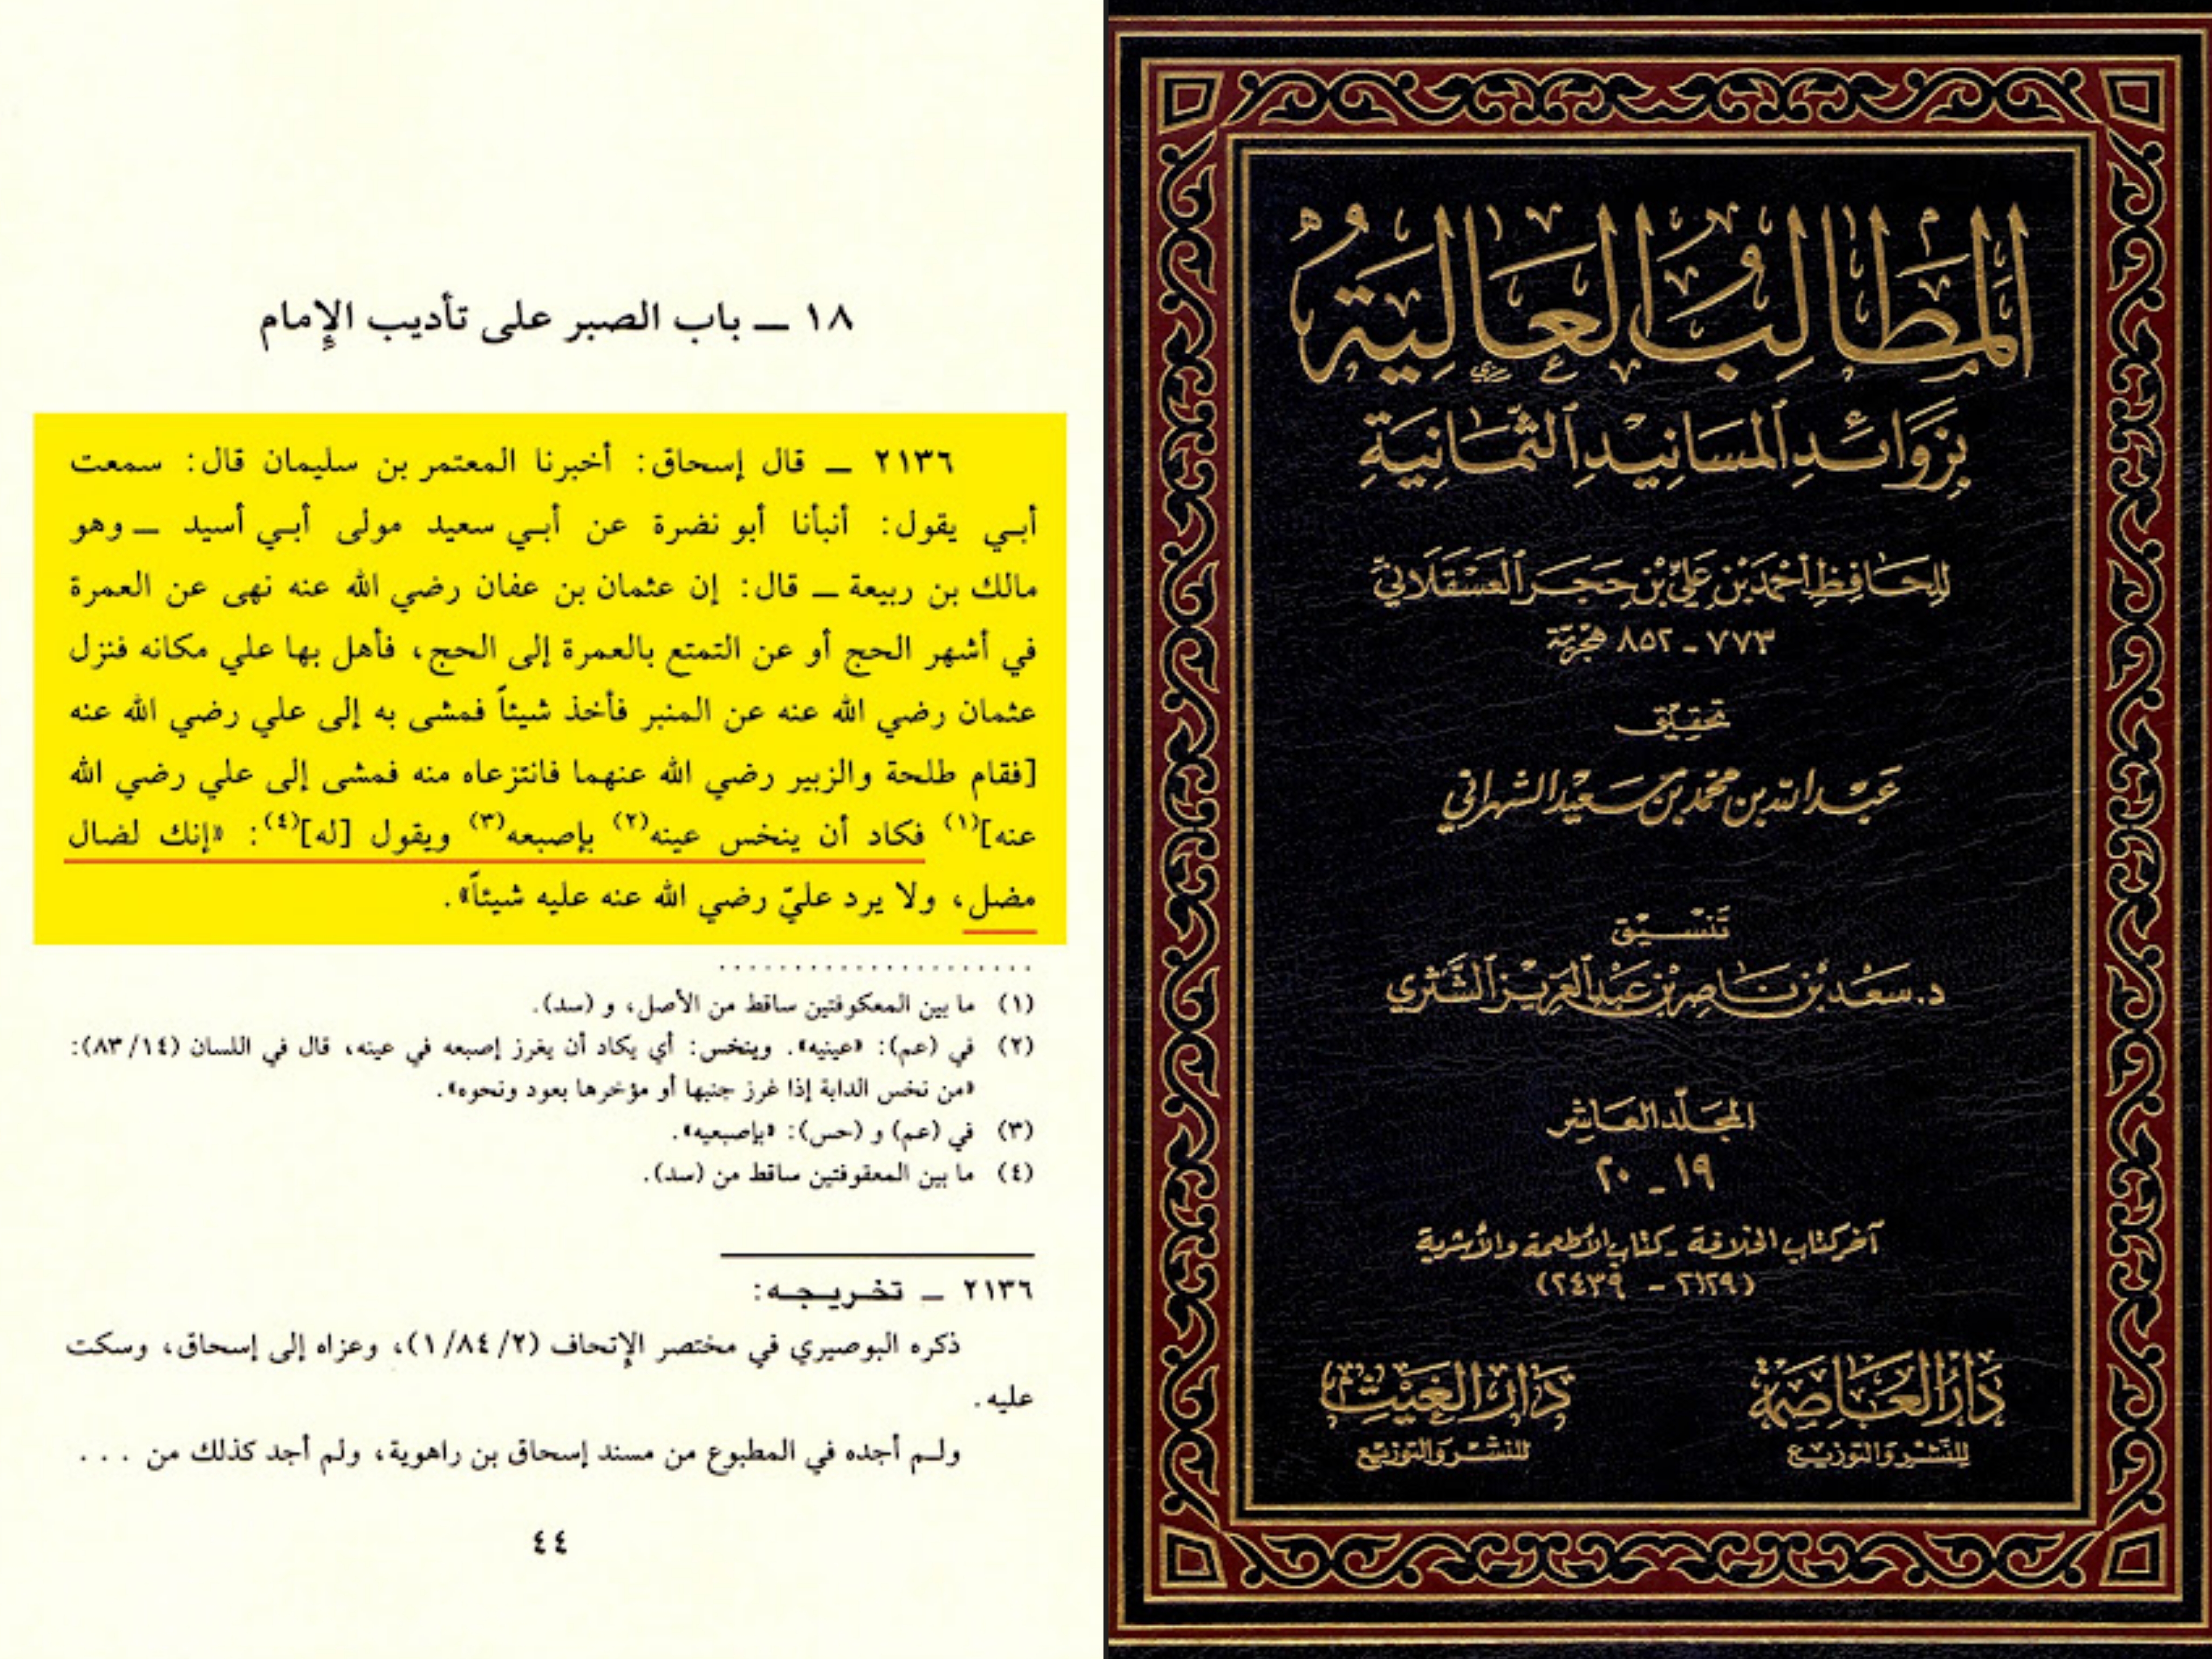 ١٨ ـ باب الصبر على تأديب الإمام
٢١٣٦ ـ قال إسحاق: أخبرنا المعتمر بن سليمان قال: سمعت
أبي يقول: أنبأنا أبو نضرة عن أبي سعيد مولى أبي أسيد ـ وهو
مالك بن ربيعة ـ قال: إن عثمان بن عفان رضي الله عنه نهى عن العمرة
في أشهر الحج أو عن التمتع بالعمرة إلى الحج، فأهل بها علي مكانه فنزل
عثمان رضي الله عنه عن المنبر فأخذ شيئاً فمشى به إلى علي رضي الله عنه
[فقام طلحة والزبير رضي الله عنهما فانتزعاه منه فمشى إلى علي رضي الله
عنه](١) فكاد أن ينخس عينه(٢) بإصبعه(٣) ويقول [له](٤): «إنك لضال
مضل، ولا يرد عليّ رضي الله عنه عليه شيئاً».
(١) ما بين المعكوفتين ساقط من الأصل، و (سد).
(٢) في (عم): «عينيه». وينخس: أي يكاد أن يغرز إصبعه في عينه، قال في اللسان (٨٣/١٤):
«من نخس الدابة إذا غرز جنبها أو مؤخرها بعود ونحوه».
(٣) في (عم) و (حس): «بإصبعيه».
(٤) ما بين المعقوفتين ساقط من (سد).
٢١٣٦ ـ تخريجه:
ذكره البوصيري في مختصر الإتحاف (١/٨٤/٢)، وعزاه إلى إسحاق، وسكت
عليه.
ولم أجده في المطبوع من مسند إسحاق بن راهوية، ولم أجد كذلك من . . .
٤٤
المَطَالِبُ العَالِيَةُ
بِزَوَائِدِ المَسَانِيدِ الثَّمَانِيَةِ
لِلحَافِظِ أَحْمَدَ بْنِ عَلِيِّ بْنِ حَجَرِ العَسْقَلَانِيِّ
٧٧٣ ـ ٨٥٢ هجرية
تحقيق
عبد الله بن محمد بن سعيد الشهراني
تنسيق
د. سعد بن ناصر بن عبد العزيز الشثري
المجلد العاشر
١٩ ـ ٢٠
آخر كتاب الخلافة ـ كتاب الأطعمة والأشربة
(٢١٢٩ ـ ٢٤٣٩)
دار العاصمة
للنشر والتوزيع
دار الغيث
للنشر والتوزيع